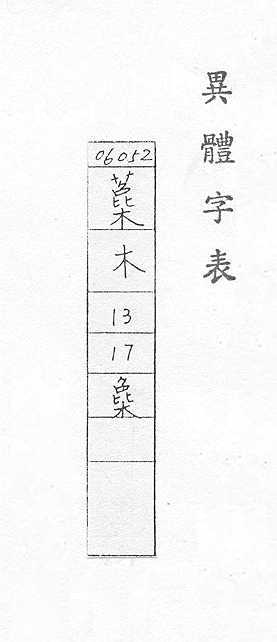 異體字表
06052
木
13
17